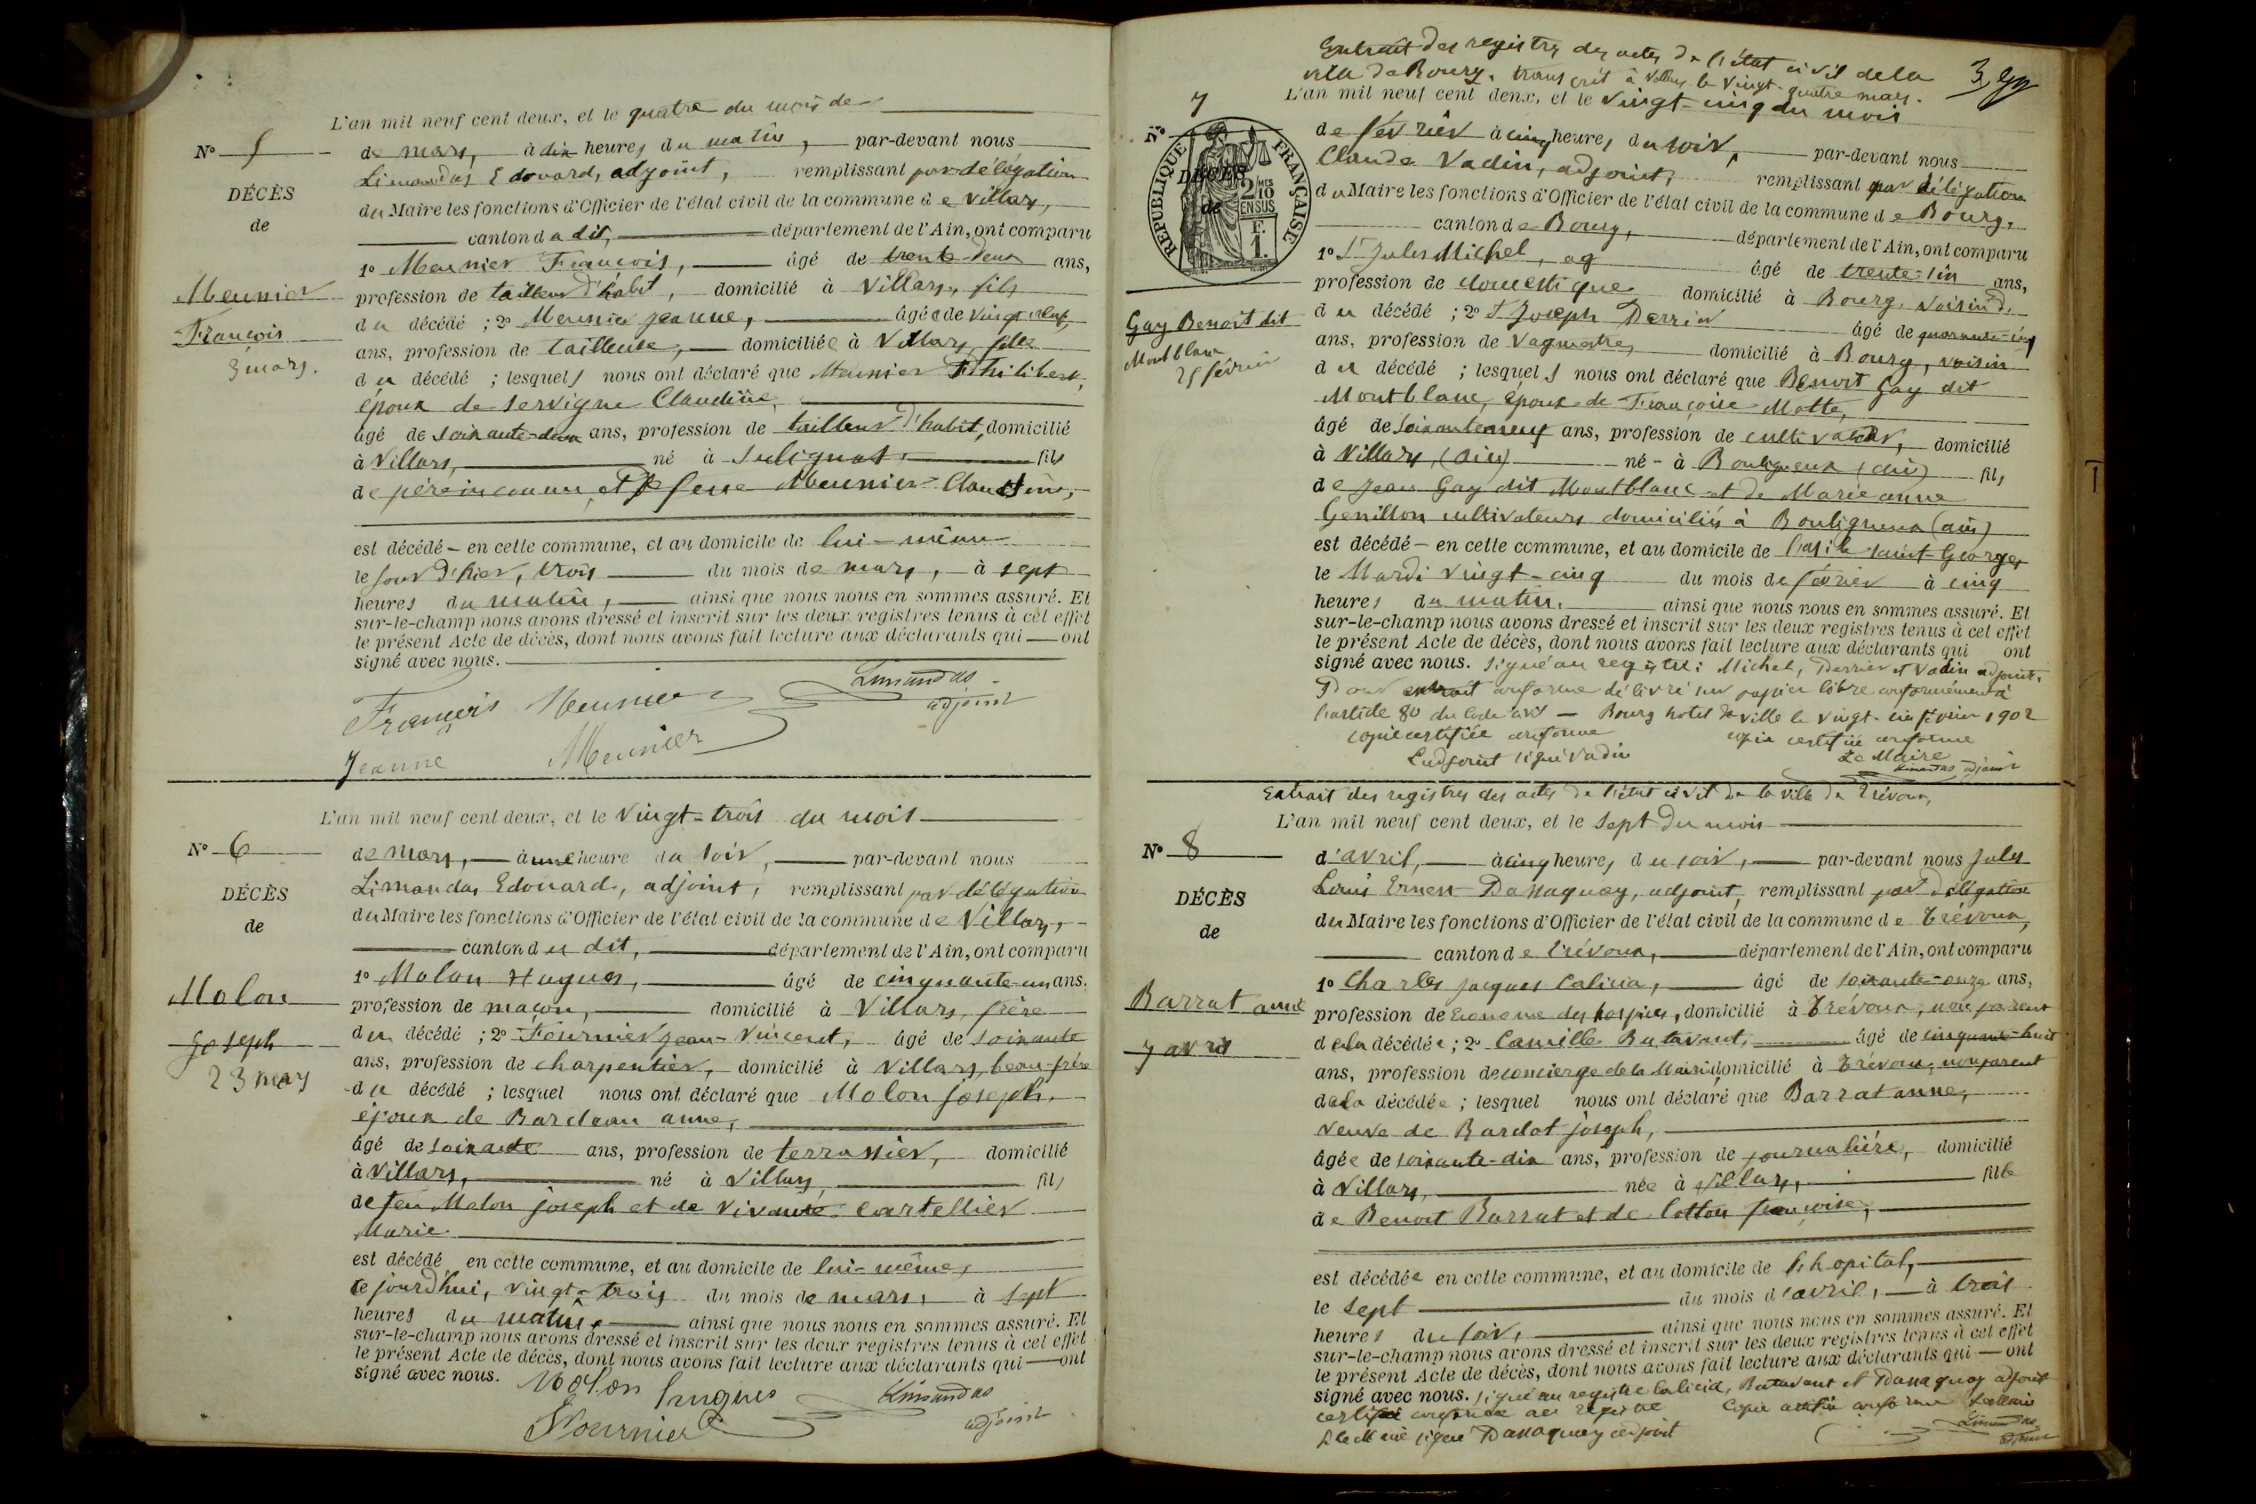 L'an mil neuf cent deux, et le quatre du mois de
N° 5
de mars, à dix heures du matin, par-devant nous
Limandas Edouard, adjoint, remplissant par délégation
DÉCÈS
du Maire les fonctions d'Officier de l'état civil de la commune de Villars,
de
canton du dit, département de l'Ain, ont comparu
1° Meunier François, âgé de trente-deux ans,
Meunier
profession de tailleur d'habit, domicilié à Villars, fils
François
du décédé ; 2° Meunier Jeanne, âgée de vingt
3 mars.
ans, profession de tailleuse, domiciliée à Villars, fille
du décédé ; lesquels nous ont déclaré que Meunier Philibert,
époux de Servigne Claudine,
âgé de soixante-deux ans, profession de tailleur d'habit, domicilié
à Villars, né à Sulignat, fils
de père inconnu, et de feue Meunier Claudine,
est décédé en cette commune, et au domicile de lui-même
le jour d'hier, trois du mois de mars, à sept
heures du matin, ainsi que nous nous en sommes assuré. Et
sur-le-champ nous avons dressé et inscrit sur les deux registres tenus à cet effet
le présent Acte de décès, dont nous avons fait lecture aux déclarants qui ont
signé avec nous.
Limandas
adjoint
François Meunier
Jeanne Meunier
L'an mil neuf cent deux, et le vingt-trois du mois
N° 6
de mars, à une heure du soir, par-devant nous
DÉCÈS
Limandas Edouard, adjoint, remplissant par délégation
de
du Maire les fonctions d'Officier de l'état civil de la commune de Villars,
canton du dit, département de l'Ain, ont comparu
1° Molon Hugues, âgé de cinquante-un ans.
Molon
profession de maçon, domicilié à Villars, frère
Joseph
du décédé ; 2° Fournier Jean-Vincent, âgé de soixante
23 mars
ans, profession de charpentier, domicilié à Villars, beau-frère
du décédé ; lesquel nous ont déclaré que Molon joseph,
époux de Bardean anne,
âgé de soixante ans, profession de terrassier, domicilié
à Villars, né à Villars, fils
de feu Molon joseph et de vivante Cartellier
Marie
est décédé en cette commune, et au domicile de lui-même,
ce jourd'hui, vingt-trois du mois de mars, à sept
heures du matin, ainsi que nous nous en sommes assuré. Et
sur-le-champ nous avons dressé et inscrit sur les deux registres tenus à cet effet
le présent Acte de décès, dont nous avons fait lecture aux déclarants qui ont
signé avec nous.
Molon hugues
Limandas
adjoint
Fournier
Extrait des registres des actes de l'état civil de la
ville de Bourg, transcrit à Villars le vingt-quatre mars.
3
L'an mil neuf cent deux, et le vingt-cinq du mois
N° 7
RÉPUBLIQUE FRANÇAISE
2/10 MES EN SUS
F. 1.
DÉCÈS
de
de février à cinq heures du soir, par-devant nous
Claude Vadin, adjoint, remplissant par délégation
du Maire les fonctions d'Officier de l'état civil de la commune de Bourg,
canton de Bourg, département de l'Ain, ont comparu
1° Jules Michel, âgé de trente-six ans,
profession de domestique domicilié à Bourg, voisin d.
Gay Benoit dit
Montblanc
25 février
du décédé ; 2° Joseph Derrier âgé de quarante-cinq
ans, profession de Vaguemestre, domicilié à Bourg, voisin
du décédé ; lesquels nous ont déclaré que Benoit Gay dit
Montblanc, époux de Françoise Motte,
âgé de soixante neuf ans, profession de cultivateur, domicilié
à Villars, (Ain) né à Bouligneux (ain) fils
de Jean Gay dit Montblanc et de Marie anne
Genillon cultivateurs domiciliés à Bouligneux (ain)
est décédé en cette commune, et au domicile de l'asile saint Georges
le Mardi vingt-cinq du mois de février à cinq
heures du matin, ainsi que nous nous en sommes assuré. Et
sur-le-champ nous avons dressé et inscrit sur les deux registres tenus à cet effet
le présent Acte de décès, dont nous avons fait lecture aux déclarants qui ont
signé avec nous. Signé au registre : Michel, Derrier et Vadin adjoint.
Pour extrait conforme délivré sur papier libre conformément à
l'article 80 du Code civil — Bourg hotel de ville le vingt-six février 1902
copie certifiée conforme
L'adjoint signé Vadin
copie certifiée conforme
Le Maire
Limandas adjoint
Extrait des registres des actes de l'état civil de la ville de Trévoux,
L'an mil neuf cent deux, et le sept du mois
N° 8
d'avril, à cinq heures du soir, par-devant nous Jules
DÉCÈS
Louis Ernest Danaguay, adjoint, remplissant par délégation
de
du Maire les fonctions d'Officier de l'état civil de la commune de Trévoux,
canton de Trévoux, département de l'Ain, ont comparu
1° Charles Jacques Calicia, âgé de soixante-onze ans,
Barrat anne
profession de Econome des hospices, domicilié à Trévoux, non parent
7 avril
de la décédée ; 2° Camille Batavant, âgé de cinquante-huit
ans, profession de concierge de la Mairie, domicilié à Trévoux, non parent
de la décédée ; lesquel nous ont déclaré que Barrat anne,
veuve de Bardot joseph,
âgée de soixante-dix ans, profession de journalière, domicilié
à Villars, née à Villars, fille
de Benoit Barrat et de Cotton françoise,
est décédée en cette commune, et au domicile de l'hopital,
le sept du mois d'avril, à trois
heures du soir, ainsi que nous nous en sommes assuré. Et
sur-le-champ nous avons dressé et inscrit sur les deux registres tenus à cet effet
le présent Acte de décès, dont nous avons fait lecture aux déclarants qui ont
signé avec nous. Signé au registre Calicia, Batavant et Danaguay adjoint
certifié conforme au registre Copie certifiée conforme Le Maire
Limandas
adjoint
signé Danaguay adjoint